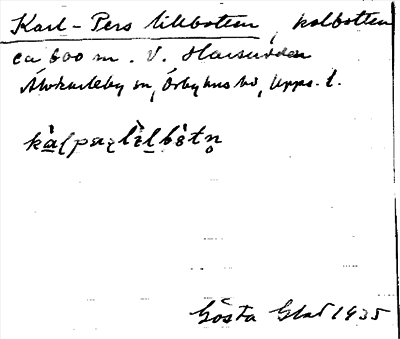 Karl-Pers lillbotten, kolbotten
ca 600 m. V. Harsudden
Älvkarleby sn, Örbyhus hd, Upps. l.
Gösta Glad 1935